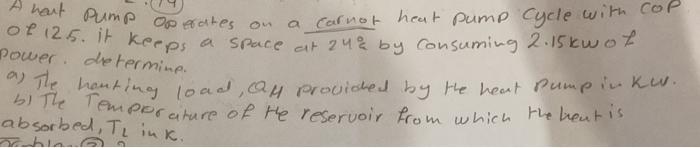 A heat pump operates on a Carnot heat pump cycle with COP
of 12.5. it keeps a space at 24°c by consuming 2.15kw of
power. determine.
a) The heating load, QH provided by the heat pump in kw.
b) The Temperature of the reservoir from which the heat is
absorbed, TL in K.